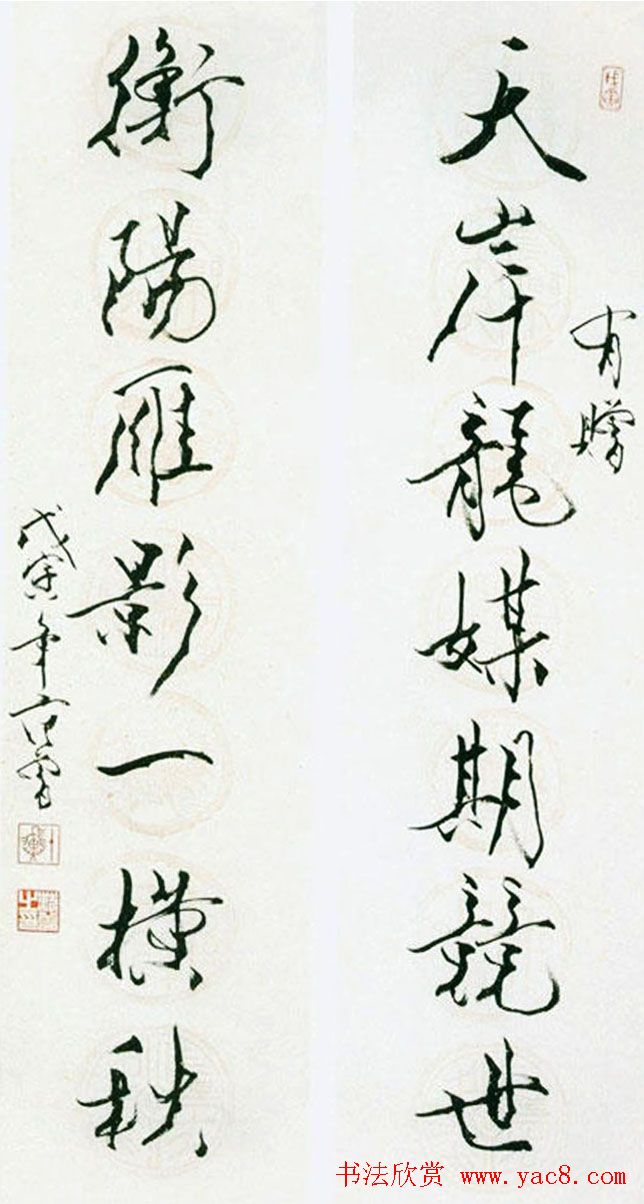 天岸龍媒期競世
有贈
衡陽雁影一橫秋
戊寅年范曾
书法欣赏 www.yac8.com